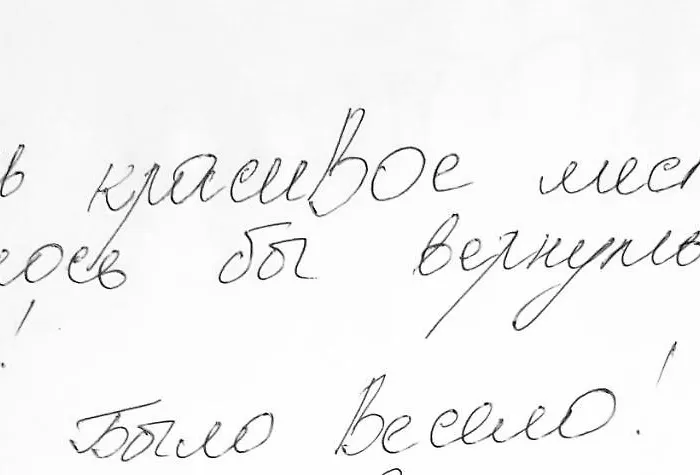 в красивое мест
лось бы вернуть
!
Было Весело!